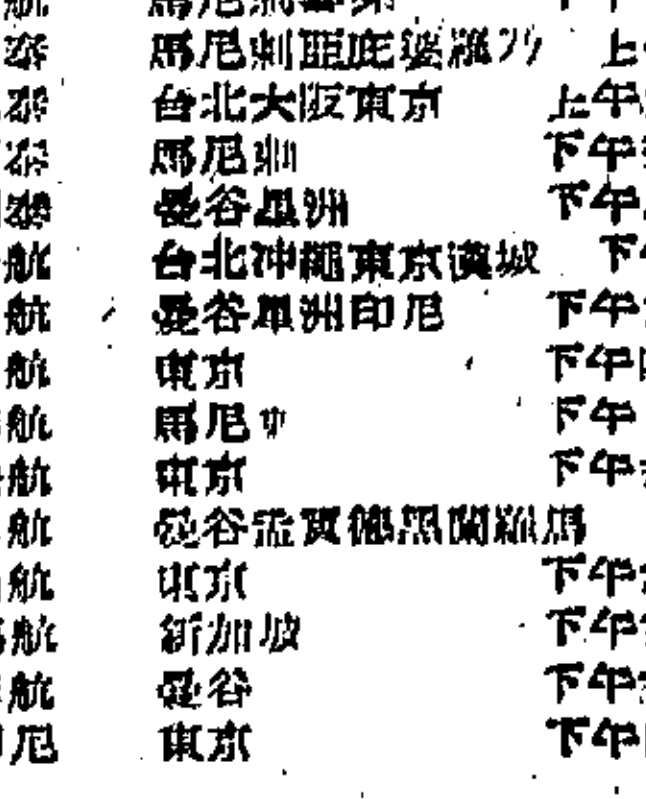 航
泰 馬尼剌 上
泰 台北大阪東京 上午
泰 馬尼剌 下午
泰 曼谷星洲 下午
航 台北沖繩東京漢城 下午
航 曼谷星洲印尼 下午
航 東京 下午
航 馬尼 下午
航 東京 下午
航 曼谷孟買德黑蘭羅馬
航 東京 下午
航 新加坡 下午
航 曼谷 下午
尼 東京 下午